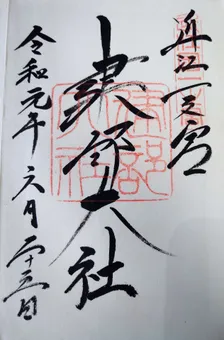 近江一之宮
建部大社
令和元年六月二十三日